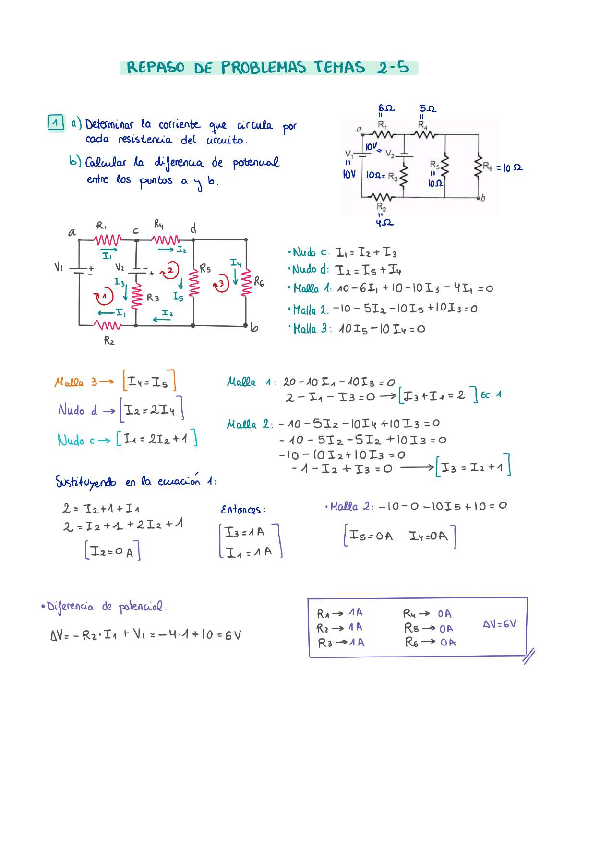 REPASO DE PROBLEMAS TEMAS 2-5
1 a) Determinar la corriente que circula por
cada resistencia del circuito.
b) Calcular la diferencia de potencial
entre los puntos a y b.
6Ω 5Ω
R1 R4
a
V1 10V V2
10V 10Ω=R3 R5 R6=10Ω
10Ω
R2 b
4Ω
a R1 c R4 d
I1 I2
V1 V2 2 R5 I4
1 I3 R3 I5 3 R6
I1 I2 b
R2
• Nudo c: I1=I2+I3
• Nudo d: I2=I5+I4
• Malla 1: 10-6I1+10-10I3-4I1=0
• Malla 2: -10-5I2-10I5+10I3=0
• Malla 3: 10I5-10I4=0
Malla 3→[I4=I5]
Nudo d→[I2=2I4]
Nudo c→[I1=2I2+1]
Malla 1: 20-10I1-10I3=0
2-I1-I3=0→[I3+I1=2] Ec.1
Malla 2: -10-5I2-10I4+10I3=0
-10-5I2-5I2+10I3=0
-10-10I2+10I3=0
-1-I2+I3=0→[I3=I2+1]
Sustituyendo en la ecuación 1:
2=I2+1+I1
2=I2+1+2I2+1
[I2=0A]
Entonces:
[I3=1A
I1=1A]
• Malla 2: -10-0-10I5+10=0
[I5=0A I4=0A]
• Diferencia de potencial.
ΔV=-R2·I1+V1=-4·1+10=6V
R1→1A R4→0A
R2→1A R5→0A ΔV=6V
R3→1A R6→0A